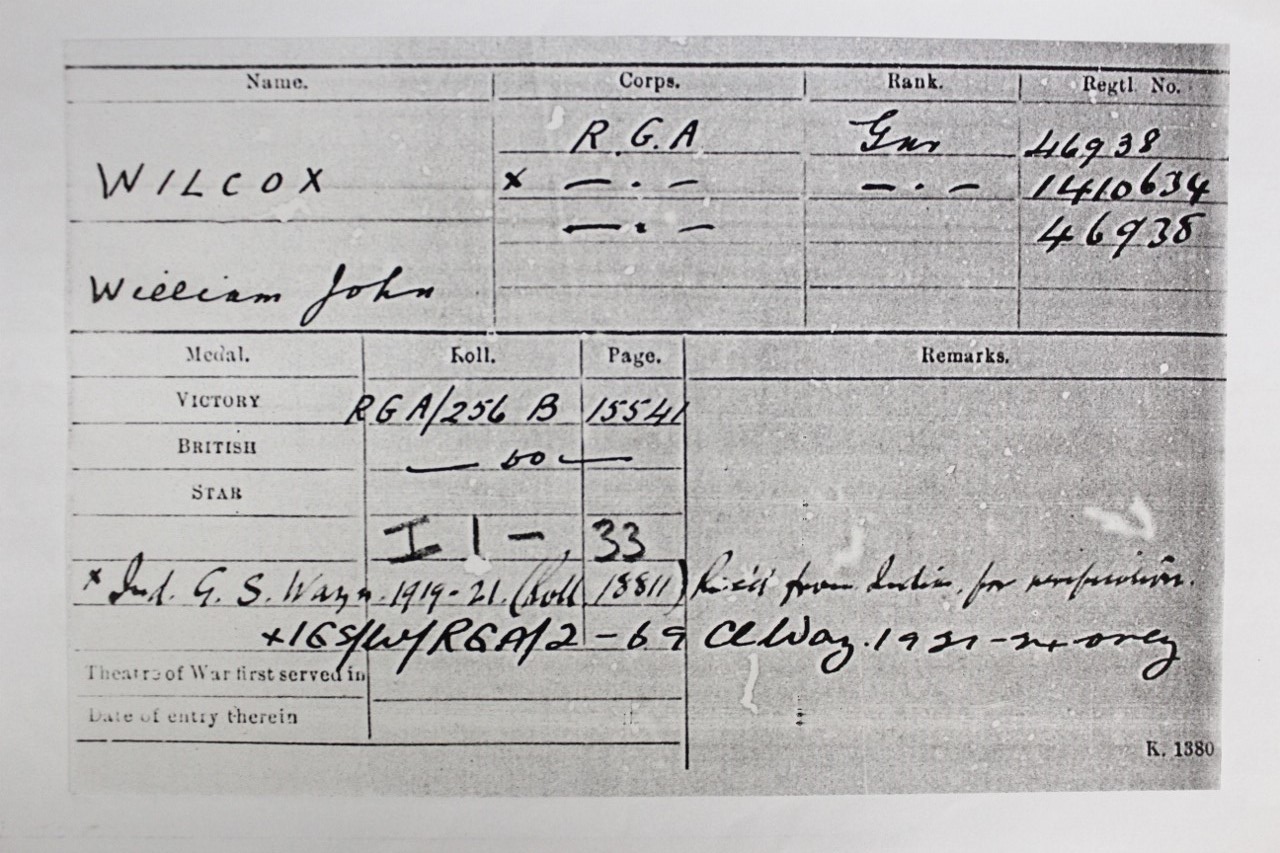 Name. Corps. Rank. Regtl. No.
R.G.A Gnr 46938
WILCOX x — . — — . — 1410634
— . — 46938
William John
Medal. Roll. Page. Remarks.
VICTORY RGA/256 B 15541
BRITISH — DO —
STAR
I 1 - 33
x Ind. G. S. Wazn. 1919-21. (Roll 18811) Rec'd from India for
x IGS/W/RGA/2 - 69 Cl Waz. 1921-24 only
Theatre of War first served in
Date of entry therein
K. 1380